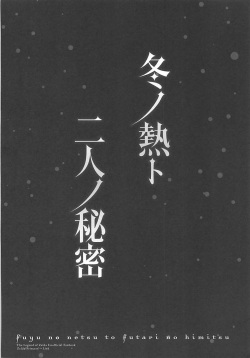 冬ノ熱ト
二人ノ秘密
Fuyu no netsu to futari no himitsu